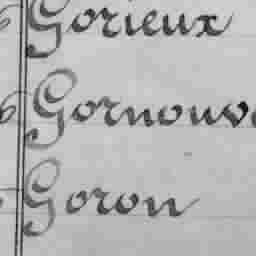 Gorieux
Gornouv
Goron